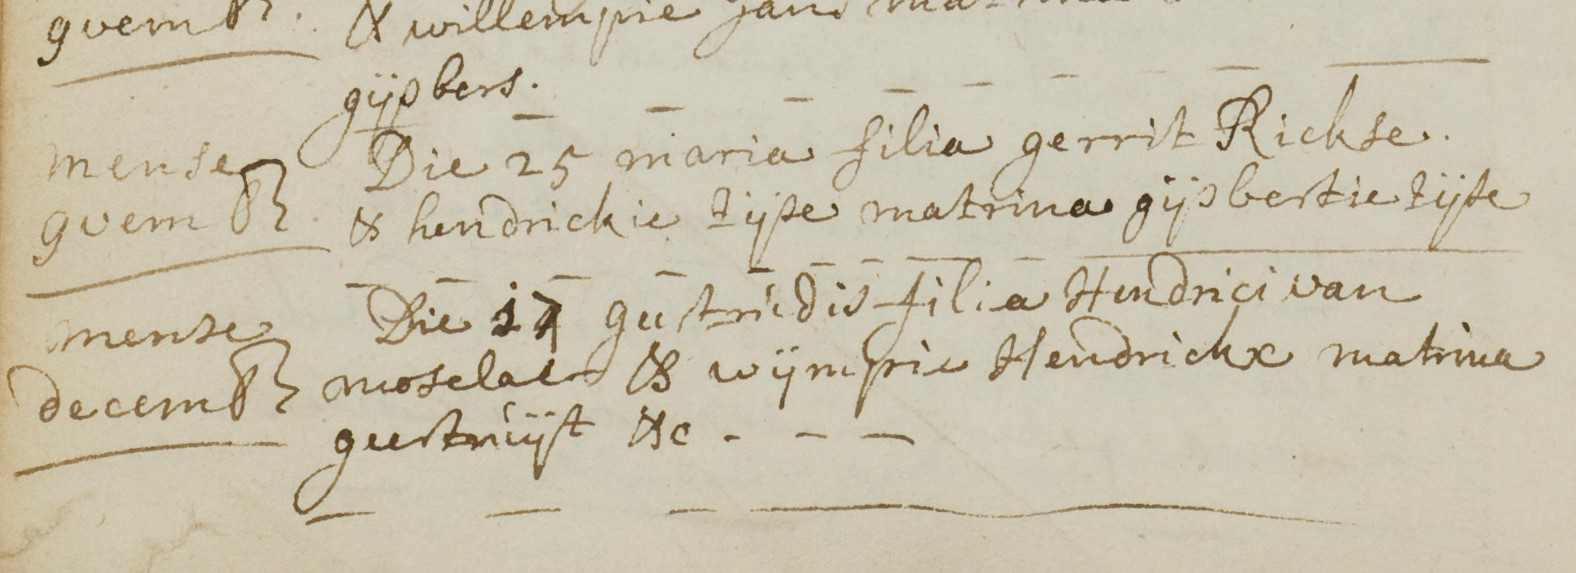 9vemb &  willempie Jans matrina
gijsbers.
mense Die 25 maria filia gerrit Rickse.
9vemb & hendrickie tijse matrina gijsbertie tijse
mense Die 17 geertrudis filia Hendrici van
decemb moselaer & wijmpie Hendrickx matrina
geertruijt &c - - -